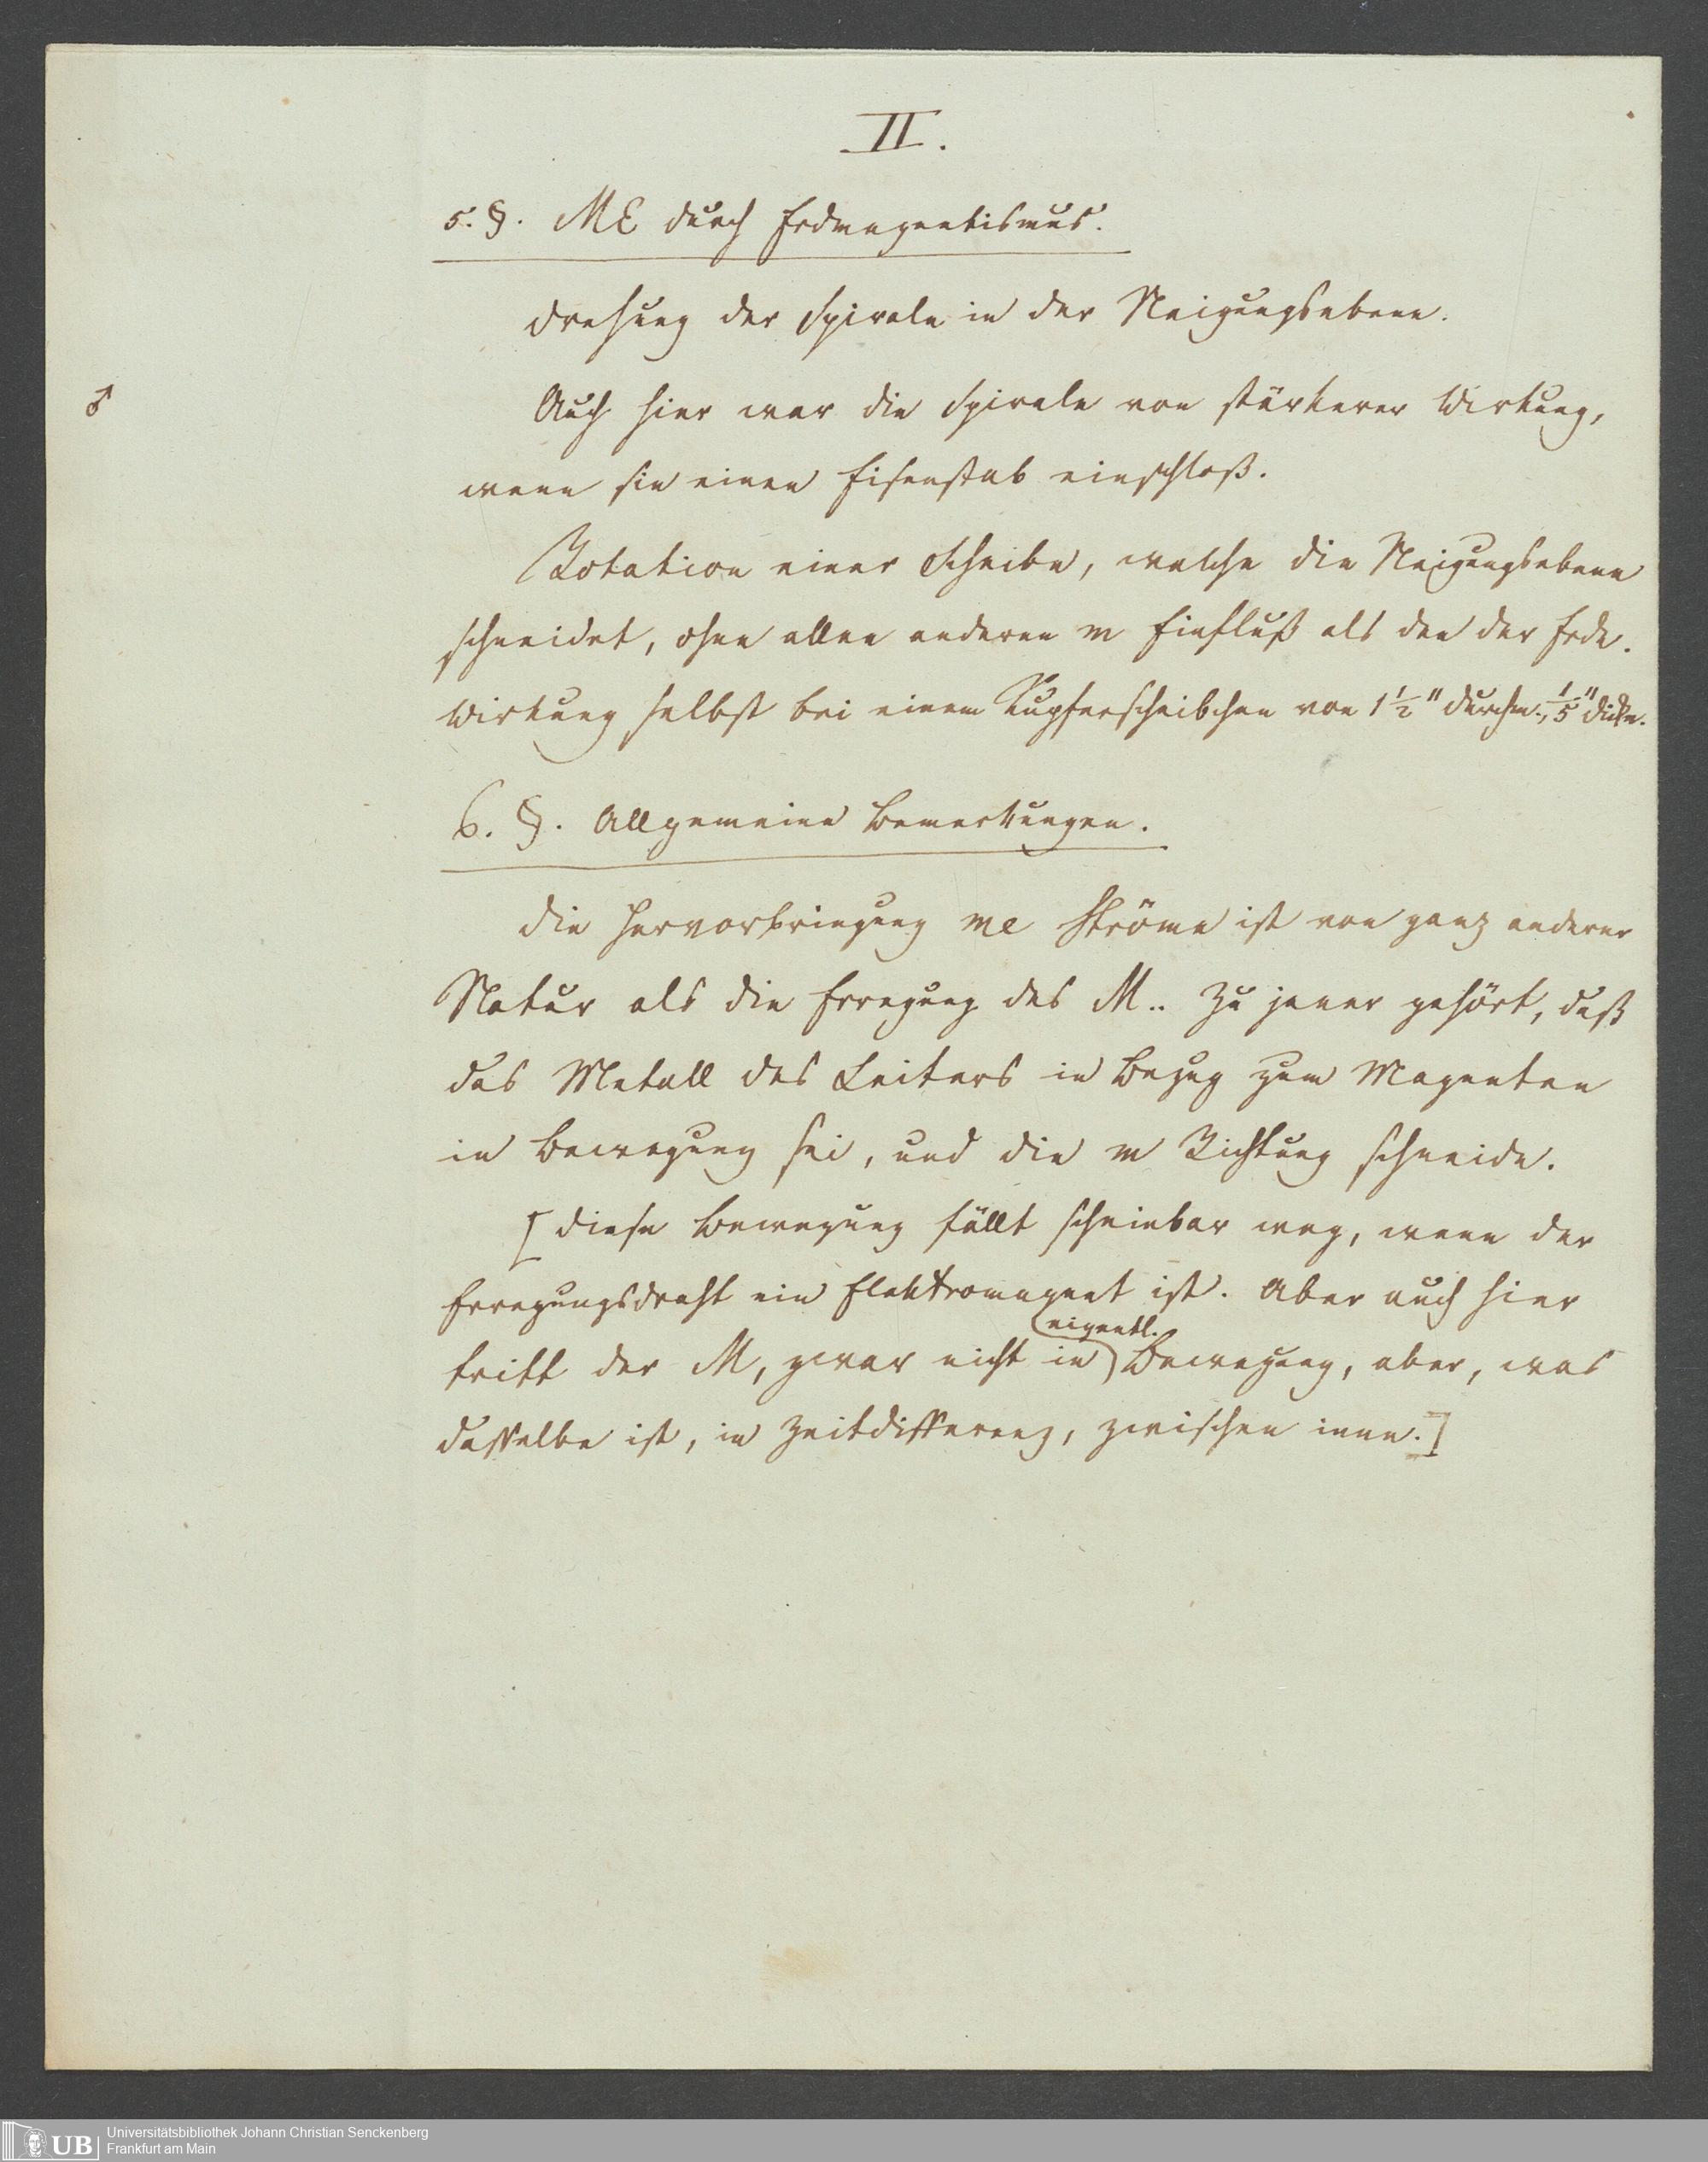 II.
5. §. ME durch Erdmagnetismus.
Drehung der Spirale in der Neigungsebene.
♂
Auch hier war die Spirale von stärkerer Wirkung,
wenn sie einen Eisenstab einschloß.
Rotation einer Scheibe, welche die Neigungsebene
schneidet, ohne allen anderen m Einfluß als den der Erde.
Wirkung selbst bei einem Kupferscheibchen von 1 1/2" Durchm., 1/5" Dicke.
6. §. Allgemeine Bemerkungen.
Die Hervorbringung me Ströme ist von ganz anderer
Natur als die Erregung des M.. Zu jener gehört, daß
das Metall des Leiters in Bezug zum Magneten
in Bewegung sei, und die m Richtung schneide.
[Diese Bewegung fällt scheinbar weg, wenn der
Erregungsdraht ein Elektromagnet ist. Aber auch hier
eigentl.
tritt der M, zwar nicht in Bewegung, aber, was
dasselbe ist, in Zeitdifferenz, zwischen inne.]
UB
Universitätsbibliothek Johann Christian Senckenberg
Frankfurt am Main